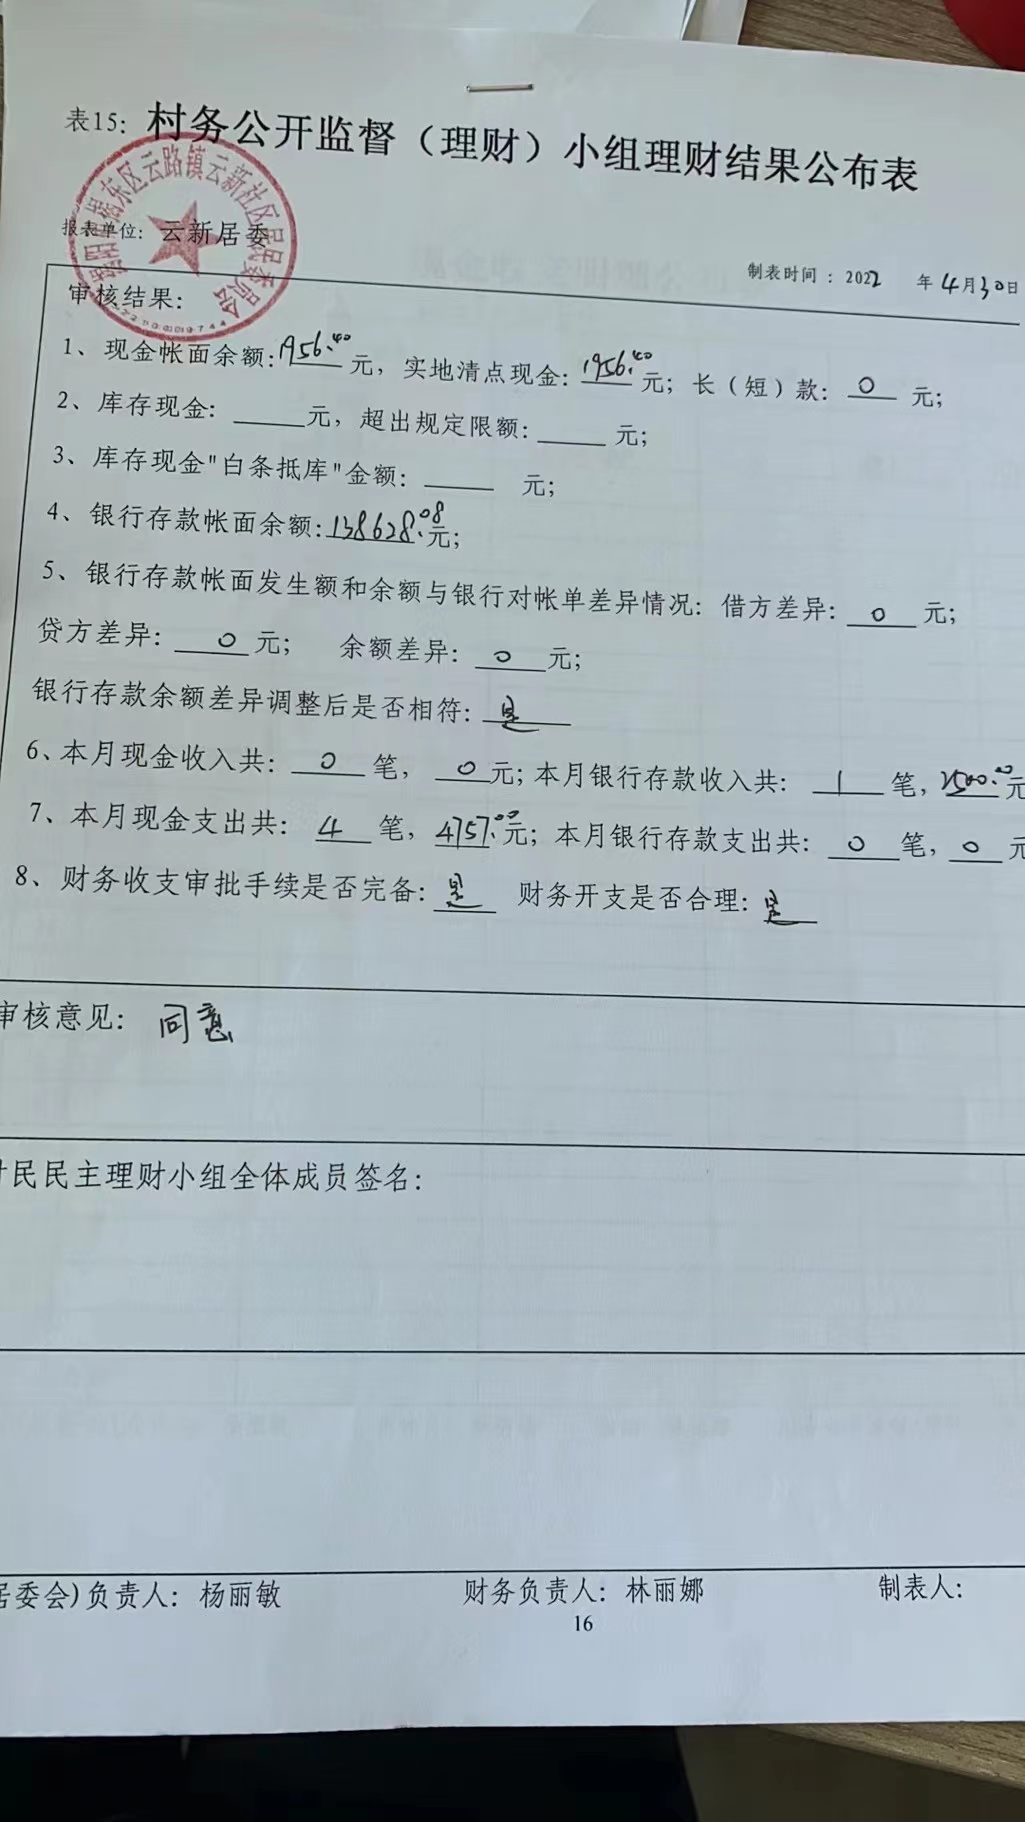 表15：村务公开监督（理财）小组理财结果公布表
报表单位：云新居委
制表时间：2022 年4月30日
审核结果：
1、现金帐面余额：1956.40元，实地清点现金：1956.40元；长（短）款：0元；
2、库存现金：____元，超出规定限额：____元；
3、库存现金"白条抵库"金额：____元；
4、银行存款帐面余额：138628.08元；
5、银行存款帐面发生额和余额与银行对帐单差异情况：借方差异：0元；
贷方差异：0元； 余额差异：0元；
银行存款余额差异调整后是否相符：是
6、本月现金收入共：0笔，0元；本月银行存款收入共：1笔，2500.00元
7、本月现金支出共：4笔，4757.00元；本月银行存款支出共：0笔，0元
8、财务收支审批手续是否完备：是 财务开支是否合理：是
审核意见：同意
民民主理财小组全体成员签名：
居委会)负责人：杨丽敏 财务负责人：林丽娜 制表人：
16